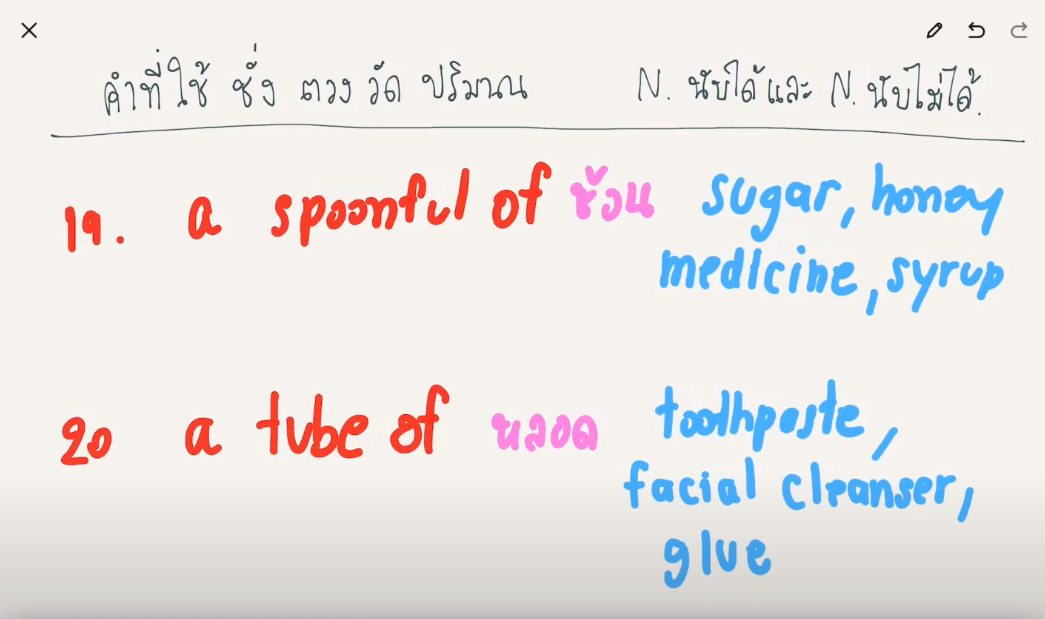 คำที่ใช้ ชั่ง ตวง วัด ปริมาณ N. นับได้และ N. นับไม่ได้.
19. a spoonful of ช้อน sugar, honey
medicine, syrup
20 a tube of หลอด toothpaste,
facial cleanser,
glue